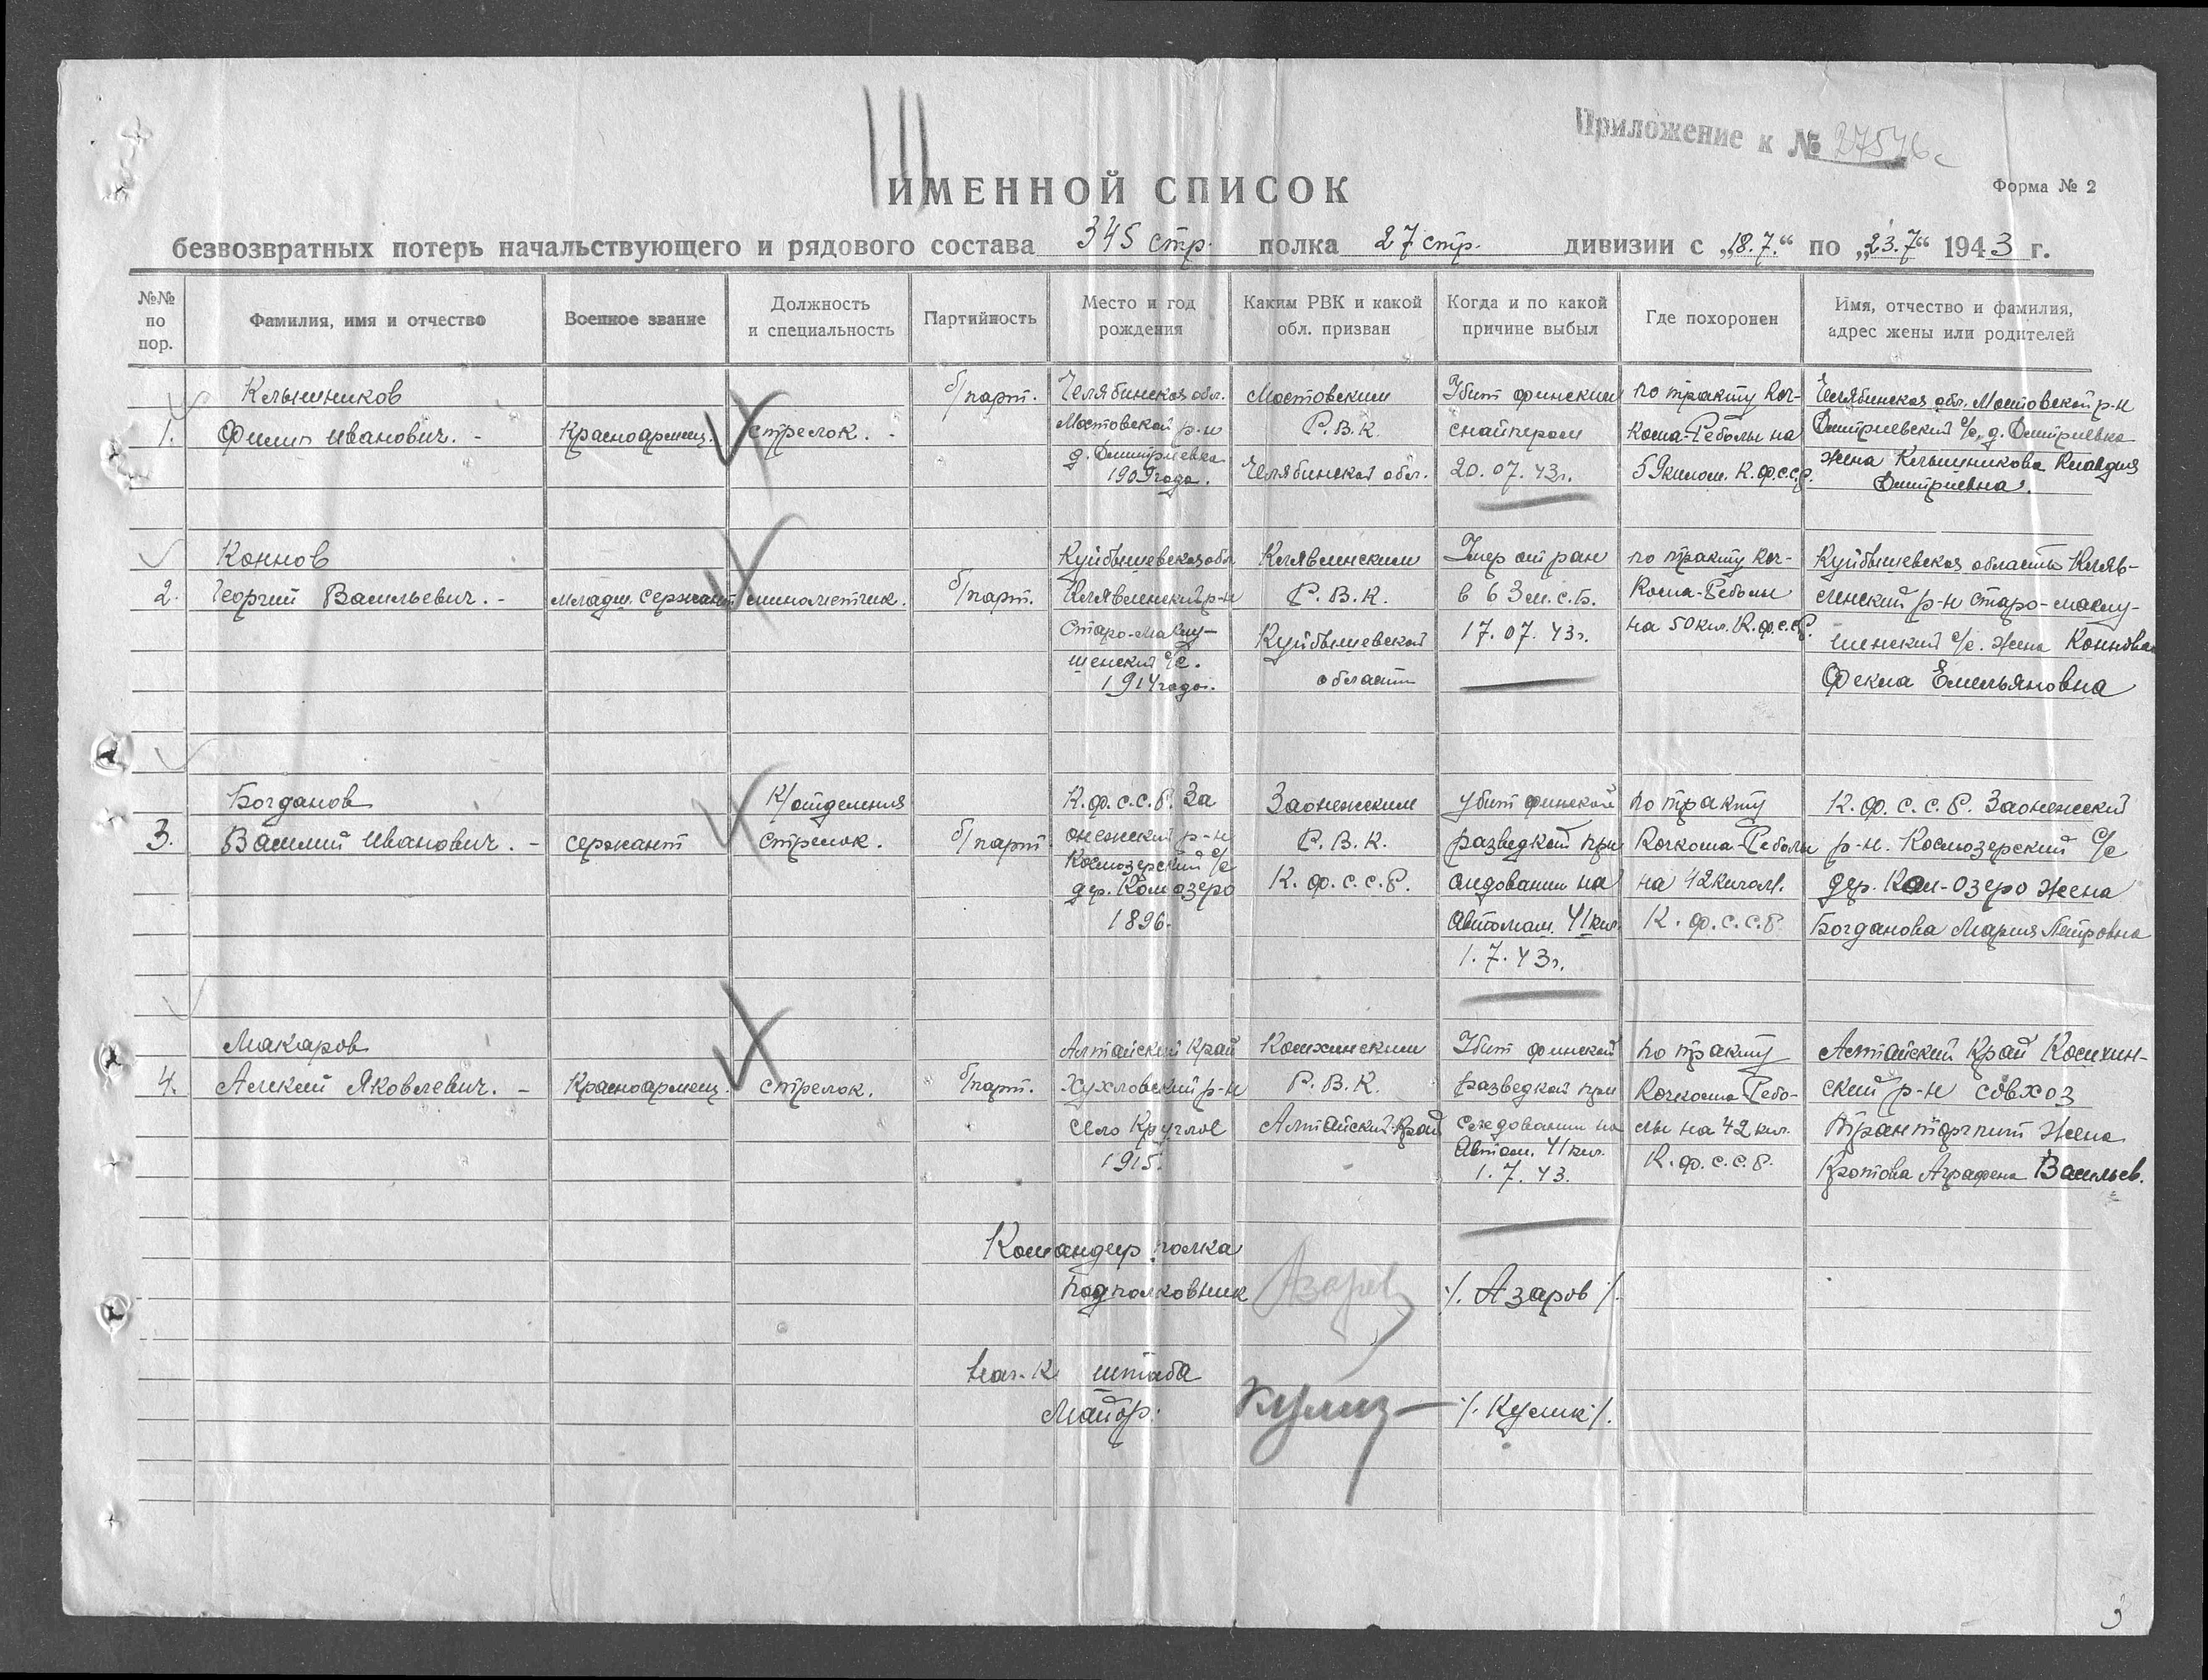 Приложение к № 27546с
ИМЕННОЙ СПИСОК
Форма № 2
безвозвратных потерь начальствующего и рядового состава 345 стр. полка 27 стр. дивизии с „18.7.“ по „23.7“ 1943 г.
№№ по пор.
Фамилия, имя и отчество
Военное звание
Должность и специальность
Партийность
Место и год рождения
Каким РВК и какой обл. призван
Когда и по какой причине выбыл
Где похоронен
Имя, отчество и фамилия, адрес жены или родителей
1.
Клышников
Филип Иванович. -
Красноармеец.
стрелок. -
б/парт.
Челябинская обл.
Мостовской р-н
д. Дмитриевка
1909 года.
Мостовским
Р.В.К.
Челябинской обл.
Убит финским
снайпером
20.07.43г.
по тракту Коч-
кома-Реболы на
59 килом. К.ф.с.с.р.
Челябинская обл. Мостовской р-н
Дмитриевский с/с, д. Дмитриевка
жена Клышникова Клавдия
Дмитриевна.
2.
Коннов
Георгий Васильевич. -
младш. сержант
минометчик.
б/парт.
Куйбышевская обл
Клявлинский р-н
Старо-Маклу-
шенский с/с.
1914 года.
Клявлинским
Р.В.К.
Куйбышевской
области
Умер от ран
в 63 м.с.б.
17.07.43г.
по тракту Коч-
кома-Реболы
на 50 кил. К.ф.с.с.р.
Куйбышевская область Кляв-
линский р-н Старо-Маклу-
шенский с/с. жена Коннова
Фекла Емельяновна
3.
Богданов
Василий Иванович. -
сержант
К/отделения
стрелок.
б/парт
К.ф.с.с.р. За
онежский р-н
Космозерский с/с
дер. Комозеро
1896.
Заонежским
Р.В.К.
К.ф.с.с.р.
убит финской
разведкой при
следовании на
Автомаш. 41 кил.
1.7.43г.
по тракту
Кочкома-Реболы
на 42 килом.
К.ф.с.с.р.
К.ф.с.с.р. Заонежский
р-н. Космозерский с/с
дер. Ком-озеро жена
Богданова Мария Петровна
4.
Макаров
Алексей Яковлевич. -
Красноармеец.
стрелок.
б/парт.
Алтайский край
р-н
село Круглое
1915.
Косихинским
Р.В.К.
Алтайский край
Убит финской
разведкой при
следовании на
Автом. 41 кил.
1.7.43.
по тракту
Кочкома-Ребо-
лы на 42 кил.
К.ф.с.с.р.
Алтайский край Косихин-
ский р-н совхоз
жена
Кротова Аграфена Васильев.
Командир полка
подполковник Азаров /. Азаров /.
Нач-к штаба
Майор. Кулик /. Кулик /.
3